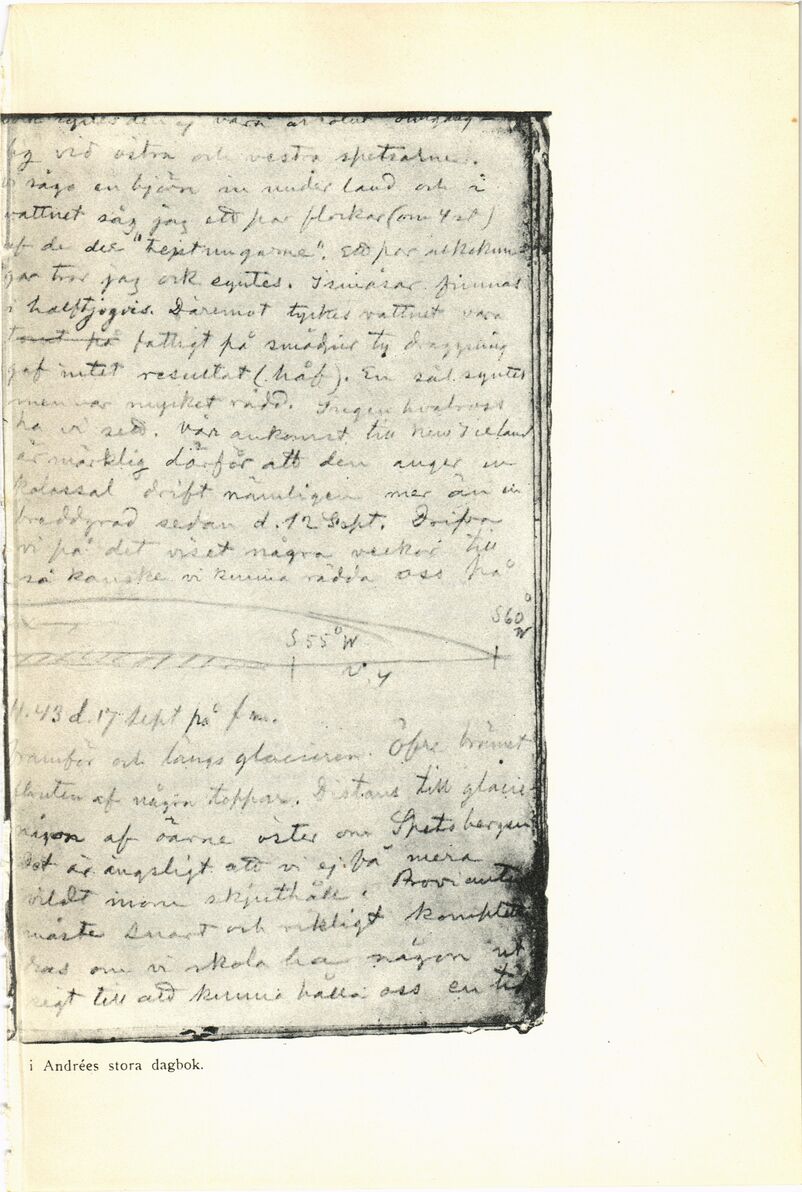 vara absolut
vid östra och vestra spetsarne.
sågo en björn in under land och i
vattnet såg jag ett par flockar (om 4 st)
af de der "tejstungarne". Ett par alkekun-
gar tror jag ock syntes. Ismåsar finnas
i halftjogvis. Däremot tyckes vattnet vara
fattigt på smådjur ty draggning
gaf intet resultat (håf). En säl syntes
men var mycket rädd. Ingen hvalross
ha vi sett. Vår ankomst till New Iceland
är märklig därför att den anger en
kolossal drift nämligen mer än en
breddgrad sedan d. 12 Sept. Drifva
vi på det viset några veckor till
så kanske vi kunna rädda oss på
S 60° W
S 55° W
4.43 d. 17 Sept på f m.
framför och längs glacieren. Öfre brämet
af någon toppar. Distans till glacie-
någon af öarne öster om Spetsbergen
Det är ängsligt att vi ej få mera
vildt inom skjuthåll. Provianten
måste snart och riktigt komplette
ras om vi skola ha någon ut
sigt till att kunna hålla oss en tid
i Andrées stora dagbok.